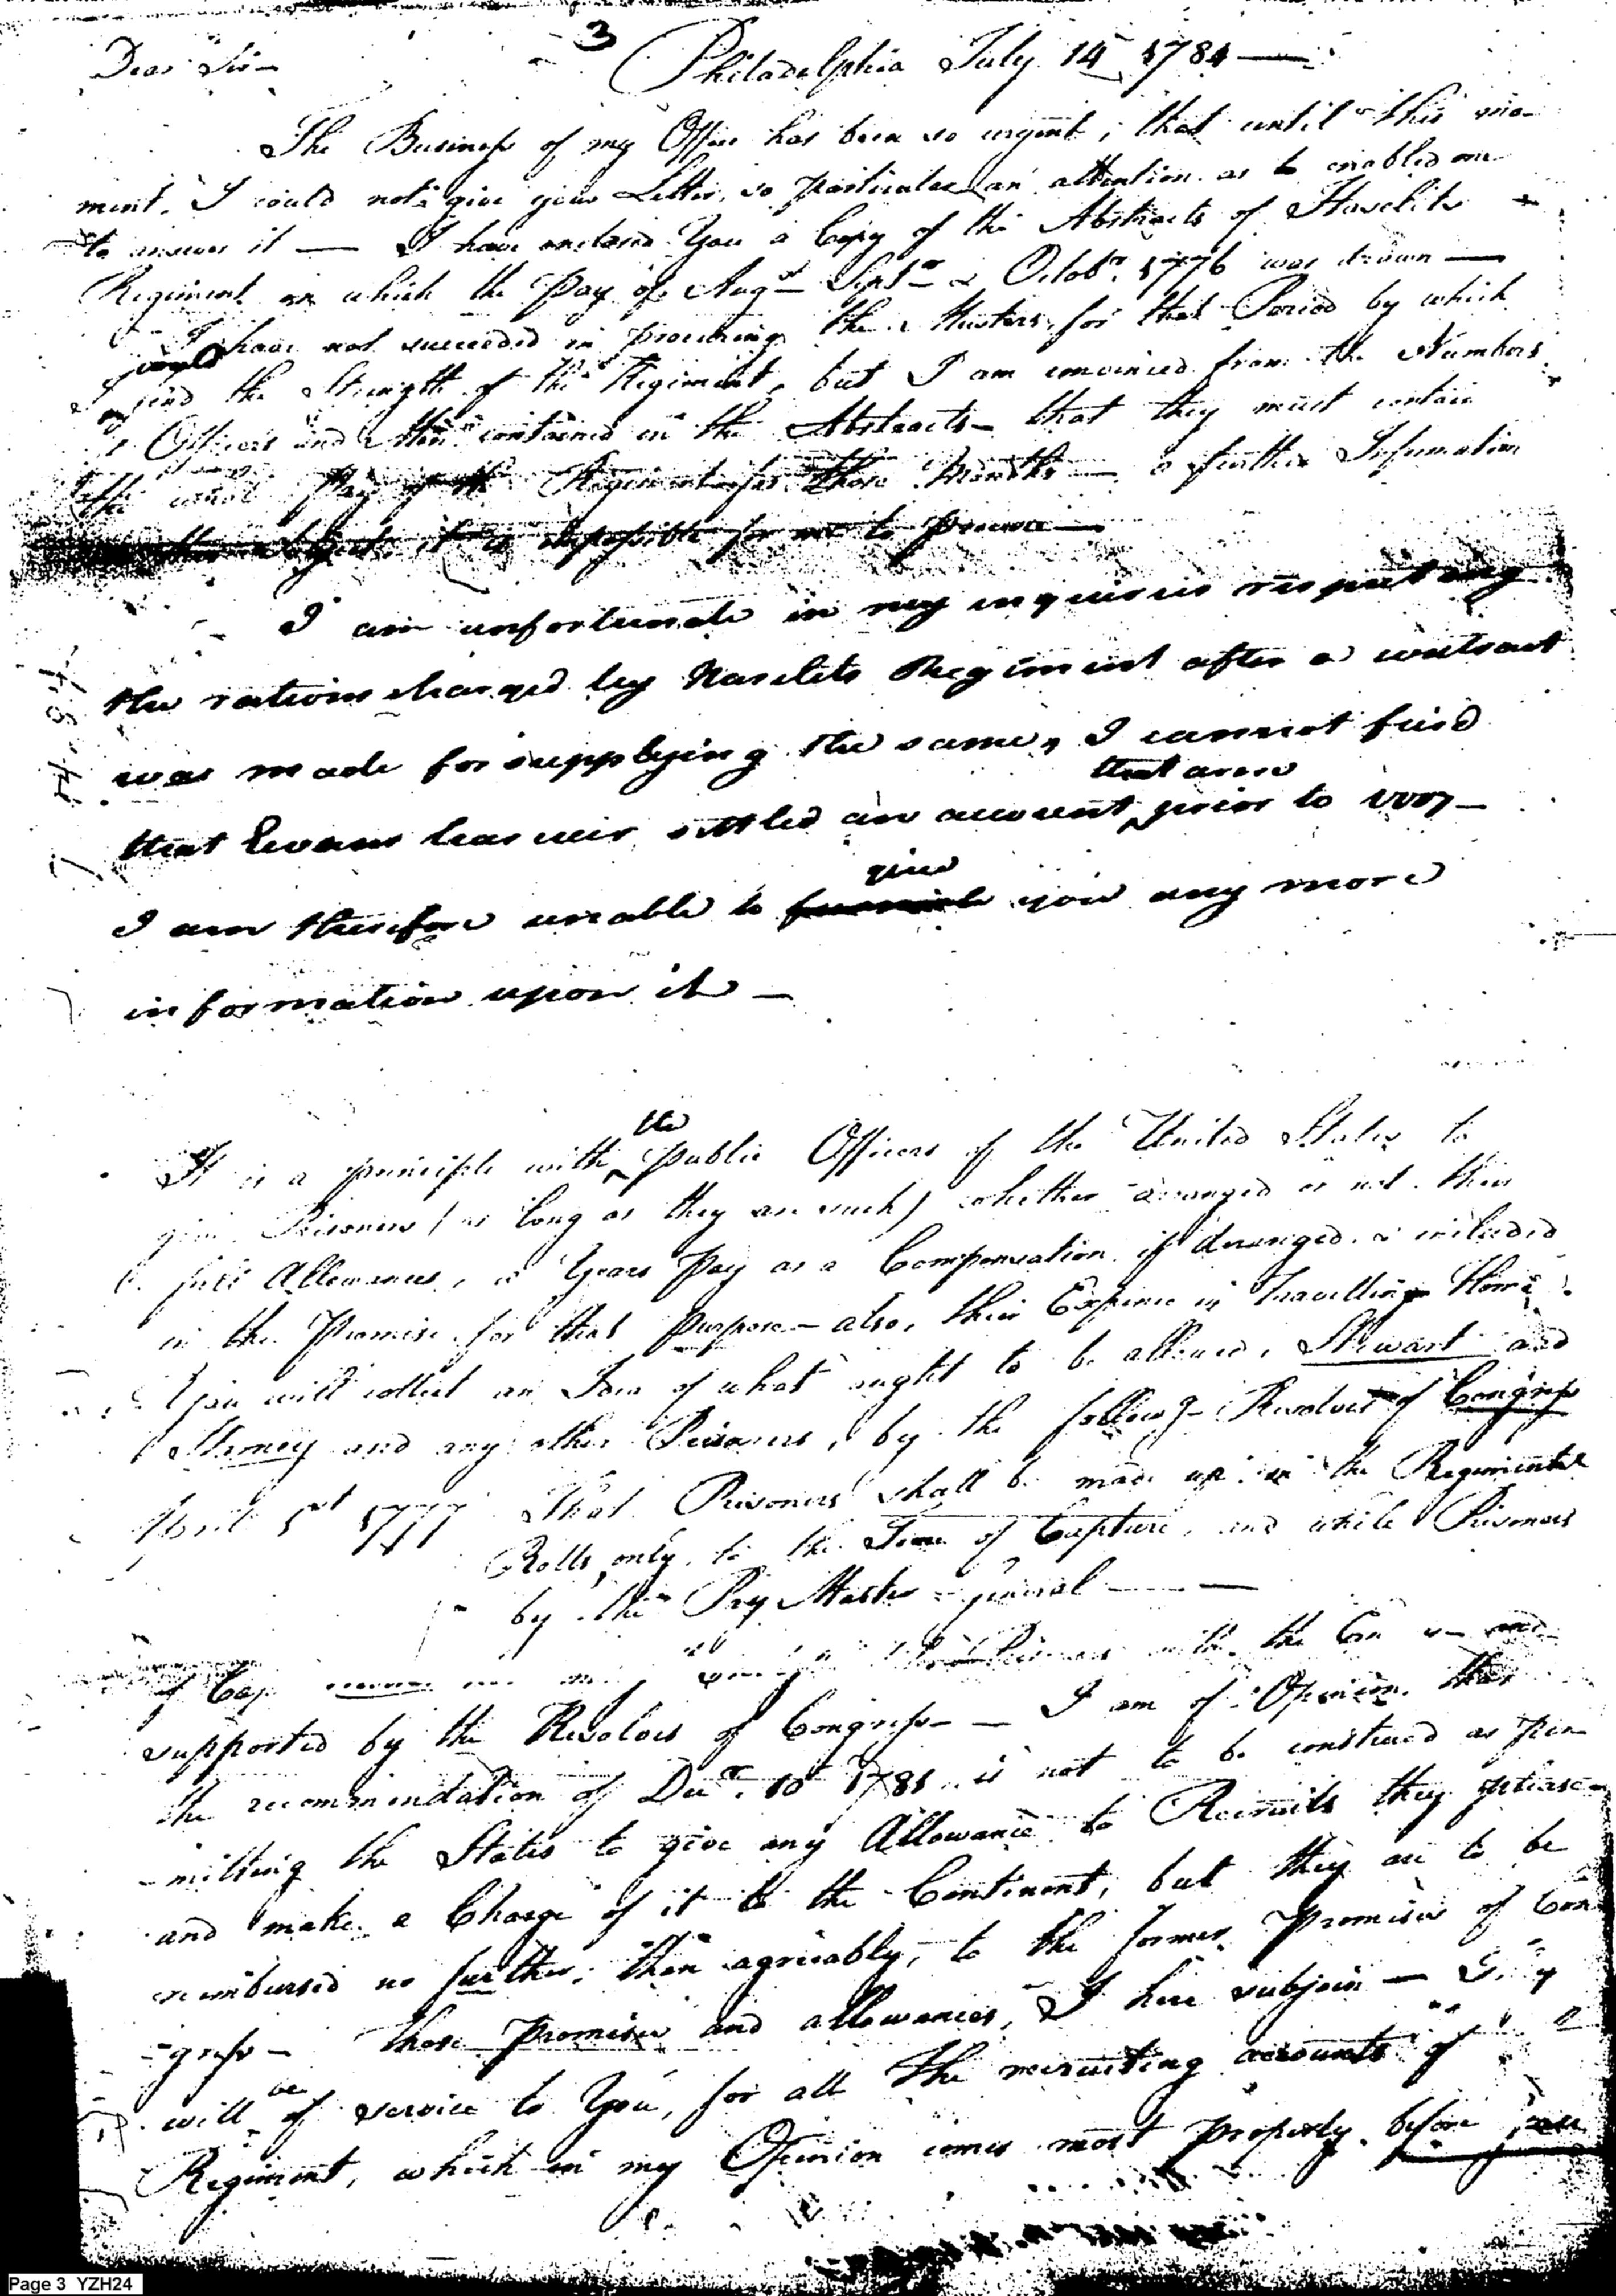 3
Dear Sir — Philadelphia July 14 1784 —
The Business of my Office has been so urgent, that until this mo-
ment, I could not give your Letter, so particular an attention as to enabled me
to answer it — I have enclosed You a Copy of the Abstracts of Haselets
Regiment on which the Pay of Augst Septr & Octobr 1776 was drawn —
I have not succeeded in procuring the Musters, for that Period by which
I would find the Strength of the Regiment, but I am convinced from the Numbers
of Officers and Men contained in the Abstracts — that they must contain
the whole Pay of the Regiment for those Months — a further Information
on this subject, it is impossible for me to procure —
I am unfortunate in my inquiries respecting
the rations charged by Haselets Regiment after a contract
was made for supplying the same, I cannot find
that Evans has ever settled an account that arose prior to 1777 —
I am therefore unable to furnish give you any more
information upon it —
1784
It is a principle with the public Officers of the United States to
give Prisoners (as long as they are such) whether arranged or not their
full Allowances, a Years Pay as a Compensation if deranged is included
in the Promise for that purpose — also, their Expence in Travelling Home
You will collect an Idea of what ought to be allowed, Stewart and
and any other Prisoners, by the followg Resolves of Congress
April 1st 1777 That Prisoners shall be made up in the Regimental
Rolls, only to the Time of Capture, and while Prisoners
by the Pay Master General —
of Cap the
supported by the Resolves of Congress — I am of Opinion that
the recommendation of Decr 10 1781 is not to be construed as per-
-mitting the States to give any Allowance to Recruits they please
and make a Charge of it to the Continent, but they are to be
reimbursed no further, than agreeably, to the former Promises of Con
-gress — those Promises and allowances, I here subjoin —
will be of service to You, for all the recruiting accounts of
Regiment, which in my Opinion comes most properly before you
Page 3 YZH24